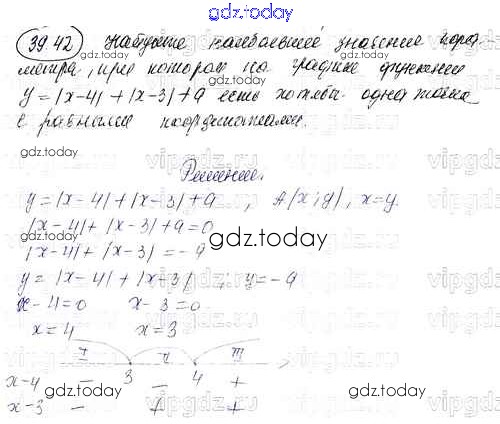 gdz.today
39.42 Найдите наибольшее значение пара
метра, при котором на графике функции
y = |x-4| + |x-3| + a есть хотя бы одна точка
с равными координатами.
gdz.today
Решение.
y = |x-4| + |x-3| + a , A(x;y), x=y.
|x-4| + |x-3| + a = 0
|x-4| + |x-3| = -a
gdz.today
y = |x-4| + |x-3| ; y = -a
x-4=0 x-3=0
x=4 x=3
I II III
3 4
x-4 − − +
x-3 − + +
gdz.today
vipgdz